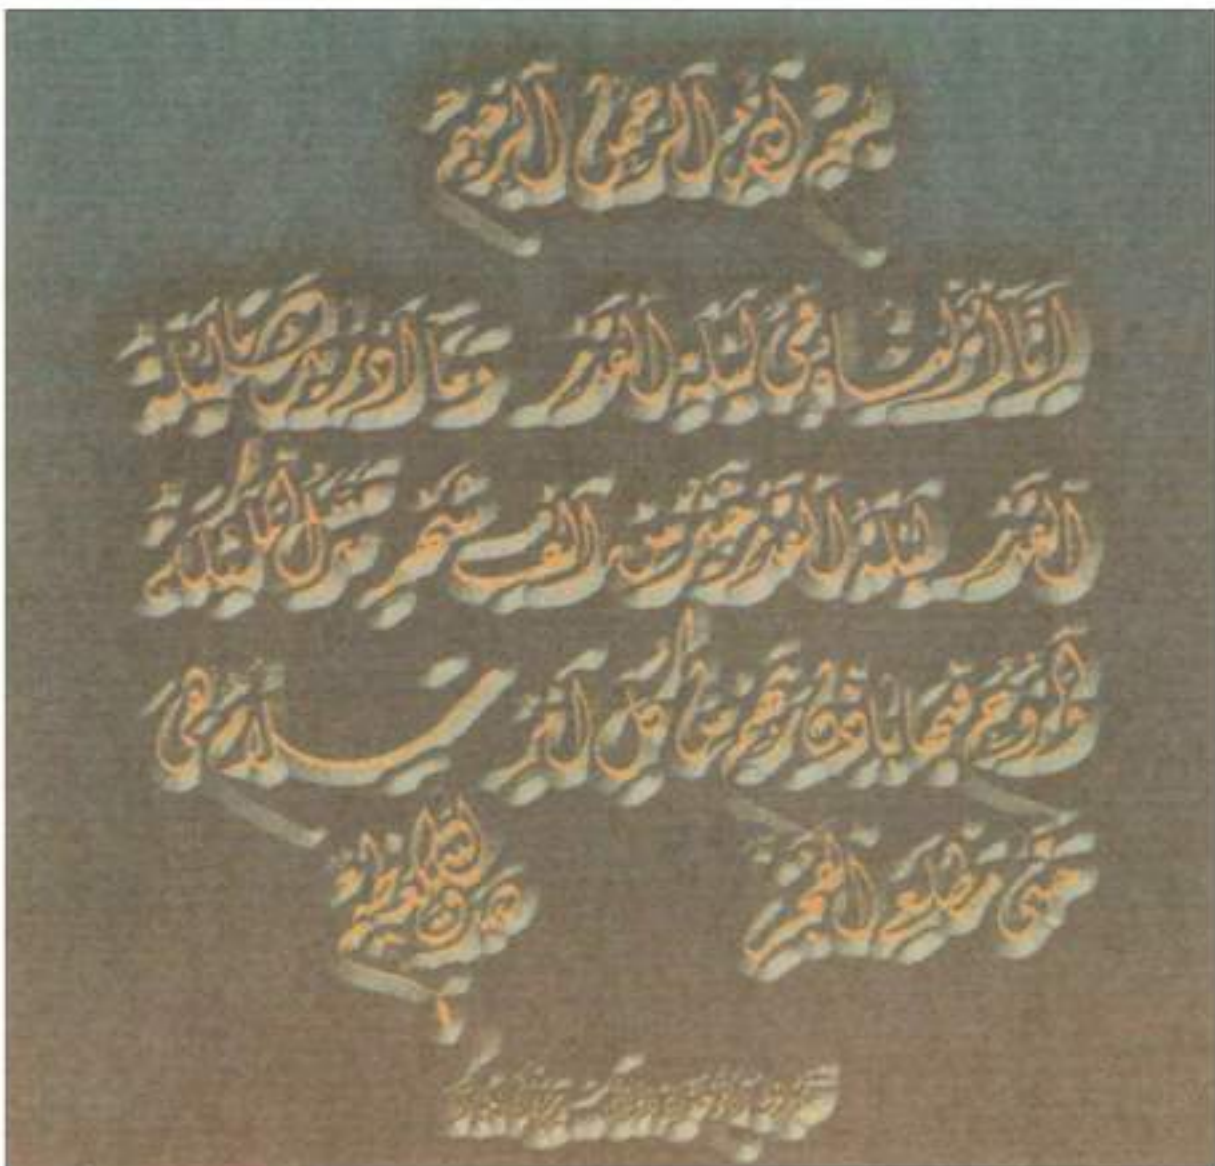 بسم الله الرحمن الرحيم
إنا أنزلناه في ليلة القدر وما أدريك ما ليلة
القدر ليلة القدر خير من ألف شهر تنزل الملئكة
والروح فيها بإذن ربهم من كل أمر سلام هي
حتى مطلع الفجر صدق الله العظيم